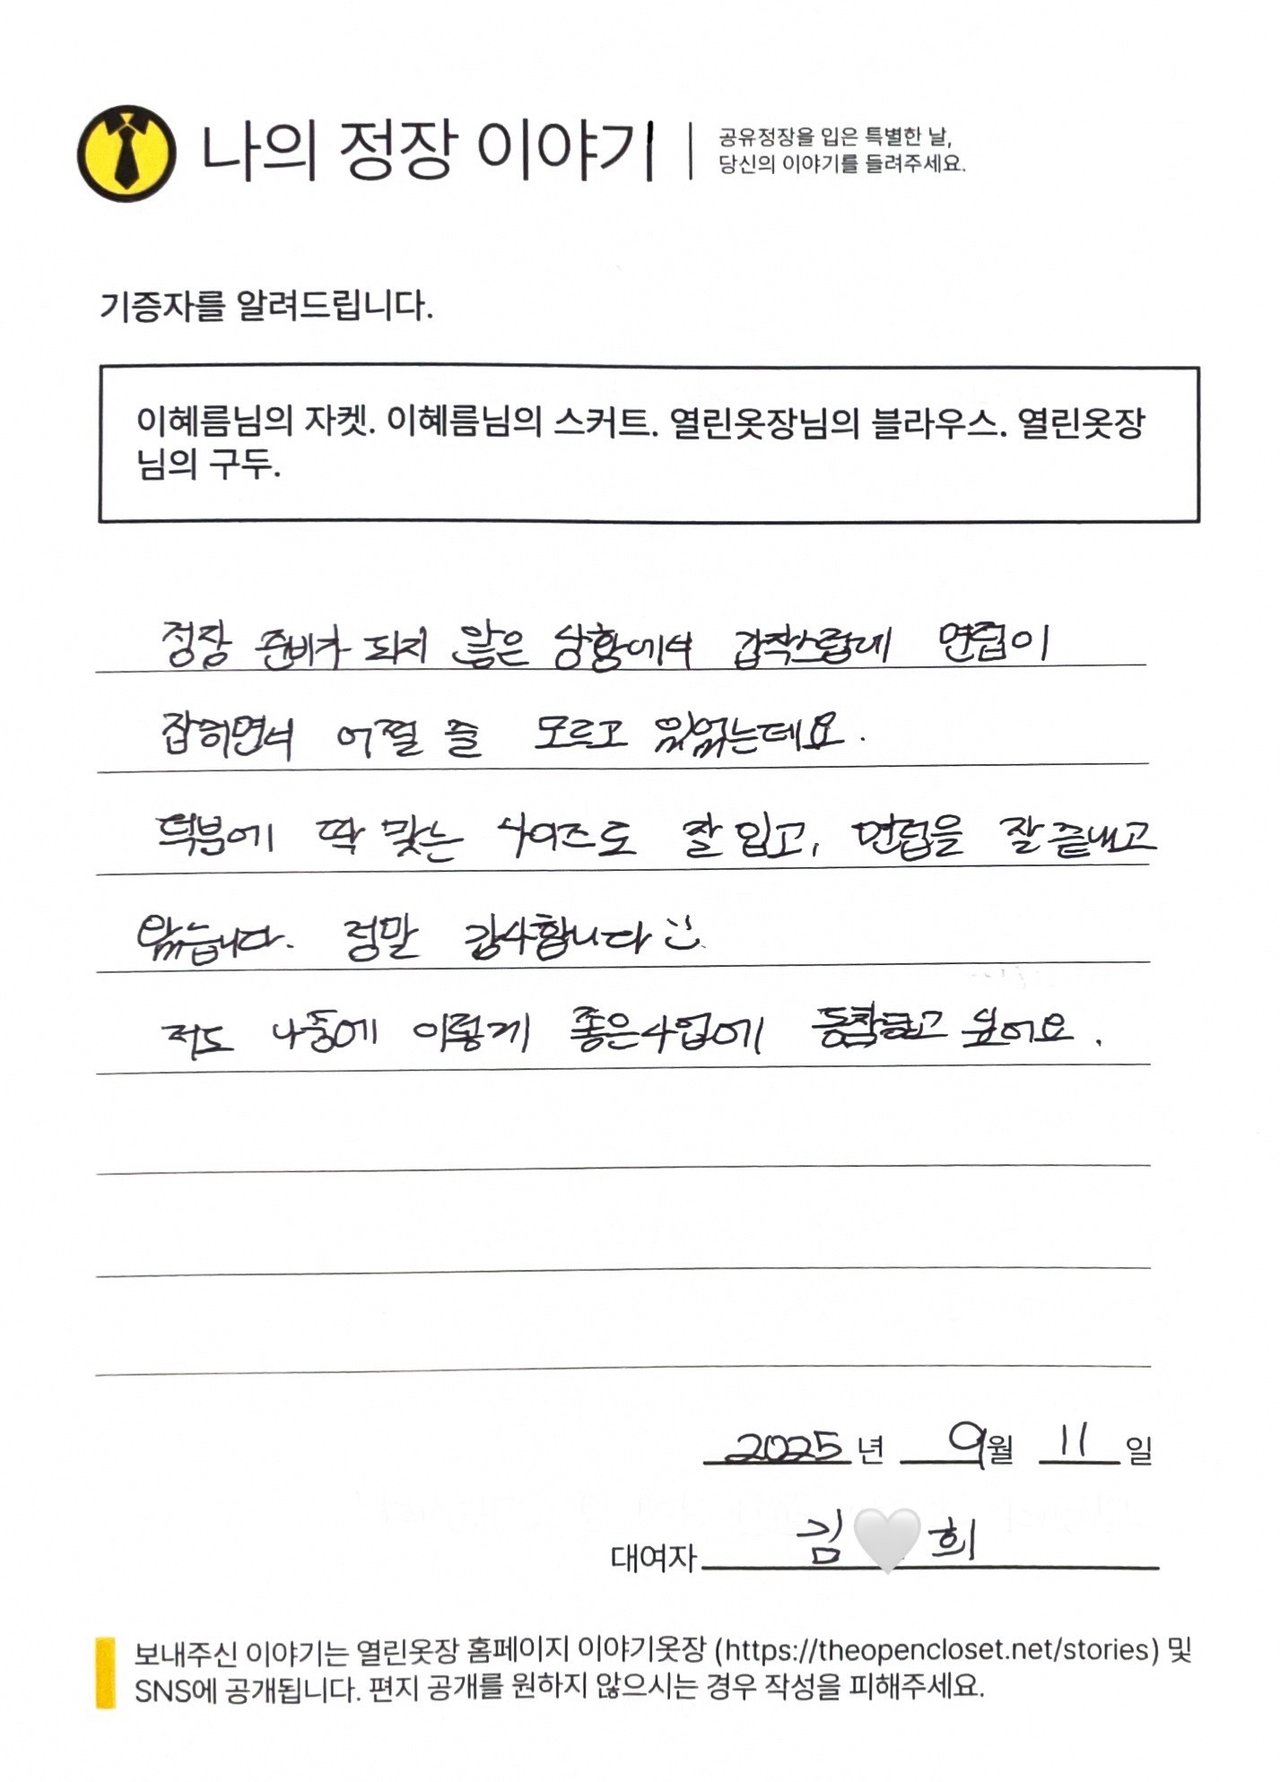 나의 정장 이야기
공유정장을 입은 특별한 날,
당신의 이야기를 들려주세요.
기증자를 알려드립니다.
이혜름님의 자켓. 이혜름님의 스커트. 열린옷장님의 블라우스. 열린옷장
님의 구두.
정장 준비가 되지 않은 상황에서 갑작스럽게 면접이
잡히면서 어쩔 줄 모르고 있었는데요.
덕분에 딱 맞는 사이즈도 잘 입고, 면접을 잘 끝내고
왔습니다. 정말 감사합니다 :)
저도 나중에 이렇게 좋은사업에 동참하고 싶어요.
2025년 9월 11일
대여자 김🤍희
보내주신 이야기는 열린옷장 홈페이지 이야기옷장 (https://theopencloset.net/stories) 및
SNS에 공개됩니다. 편지 공개를 원하지 않으시는 경우 작성을 피해주세요.